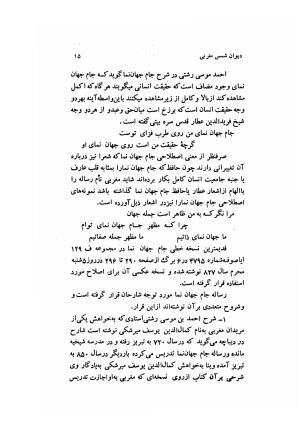 دیوان شمس مغربی
۱۵
احمد موسی رشتی در شرح جام جهان‌نما گوید که جام جهان
نمای وجود مضاف است که حقیقت انسانی میگویند هرگاه که اکمل
مشاهده کند از بالا و کامل از زیر مشاهده میکنند باین واسطه آینه بهر دو
حقیقت انسانی است که برزخ است میان حق و عبد و از هر دو وجه
شیخ فریدالدین عطار قدس سره بیتی گفته است.
جام جهان نمای من روی طرب فزای توست
گرچهٔ حقیقت من است روی جهان نمای او
صرفنظر از معنی اصطلاحی جام جهان نما که شعرا نیز درباره
آن تعبیراتی دارند چون حافظ که جهان نما را بمثابه قلب عارف
یا جنبه جامعیت انسان کامل بکار برده‌اند شاید مغربی نام رساله را
با الهام از اشعار عطار یا حافظ جام جهان نما گذاشته باشد نمونه‌های
اصطلاحی جام جهان نما را نیز در اشعار ذیل آورده است.
مرا نگر که به من ظاهر است جمله جهان
چرا که مظهر جام جهان نمای توام
ما جهان نمای ذاتیم
ما مظهر جمله صفاتیم
قدیمترین نسخه خطی جام جهان نما در مجموعه ف ۱۲۹
ایاصوفه شماره ۴۷۹۵ در ۶ برگ از صفحه ۲۹۰ تا ۲۹۶ در روز شنبه
محرم سال ۸۲۷ نوشته شده و نسخه عکسی آن برای اصلاح مورد
استفاده قرار گرفته است.
رساله جام جهان نما مورد توجه شارحان قرار گرفته است و
شروح متعددی بر آن نوشته‌اند از این قرار.
۱ـ شرح احمد بن موسی رشتی استادی که به خواهش یکی از
مریدان مغربی به‌نام کمال‌الدین یوسف میرشکی نوشته است شارح
در دیباچه می‌گوید که در سال ۷۲۰ به تبریز رفته و در مدرسه شیخیه
مانده و رساله جام جهان‌نما تدریس می‌کرده بار دیگر در سال ۸۵۰ به
تبریز آمده و بنا به‌خواهش کمال‌الدین یوسف میرشکی به‌یادگار وی
شرحی بر آن کتاب از روی نسخه‌ای که مغربی به او اجازت تدریس